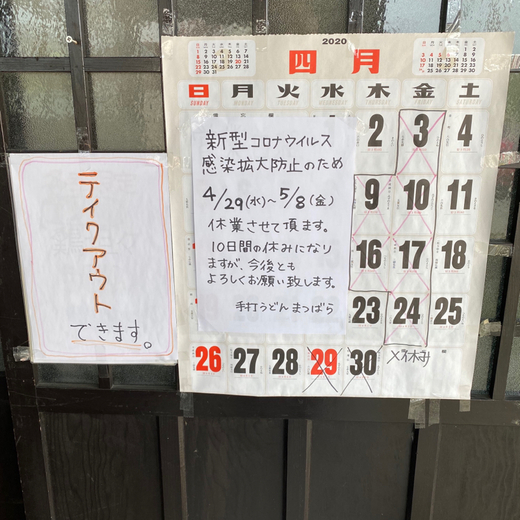 テイクアウト
できます。
2020
四月
日月火水木金土
SUNDAY
2 3 4
9 10 11
16 17 18
23 24 25
26 27 28 29 30
×が休み
新型コロナウイルス
感染拡大防止のため
4/29(水)～5/8(金)
休業させて頂ます。
10日間の休みになり
ますが、今後とも
よろしくお願い致します。
手打うどん まつばら